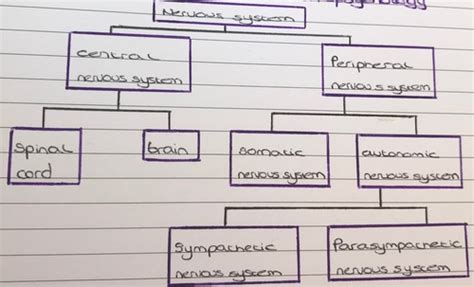 Nervous system
central
nervous system
Peripheral
nervous system
spinal
cord
brain
somatic
nervous system
autonomic
nervous system
Sympathetic
nervous system
Parasympathetic
nervous system